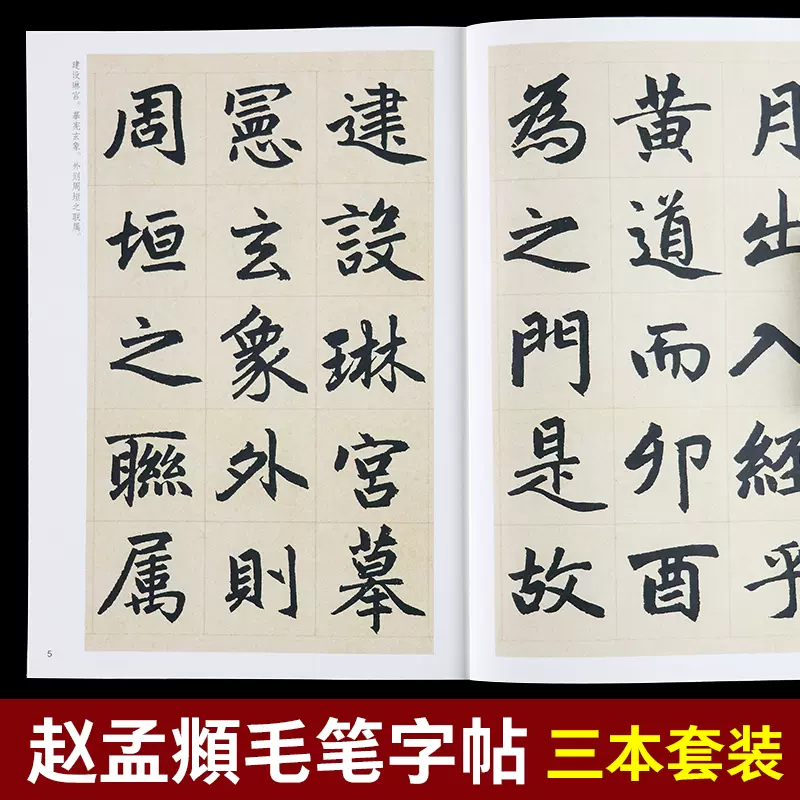 建设琳宫。摹宪玄象。外则周垣之联属。
建設琳宮摹
憲玄象外則
周垣之聯属
5
月出入經乎
黄道而卯酉
為之門是故
赵孟頫毛笔字帖 三本套装